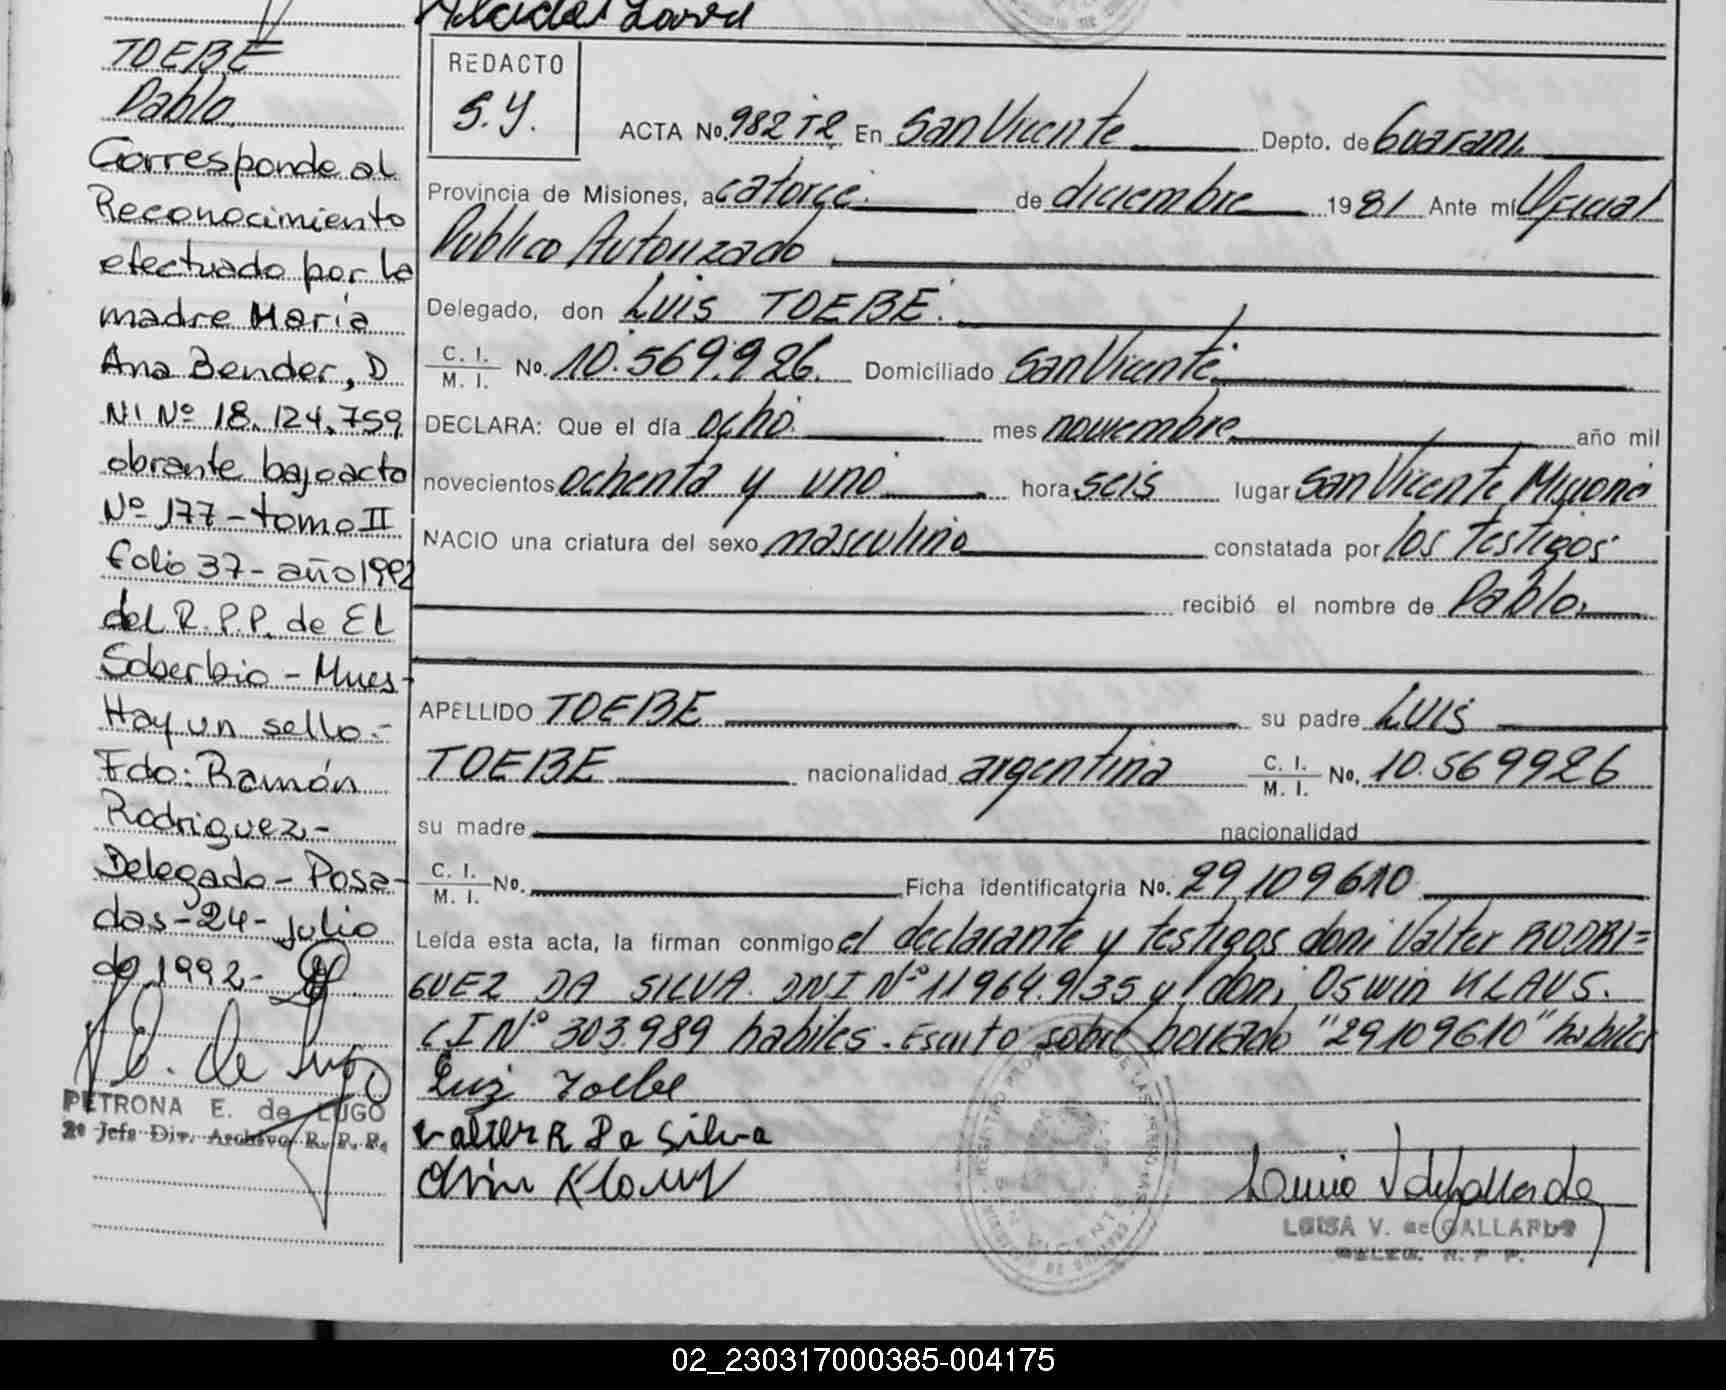 TOEBE
Pablo
Corresponde al
Reconocimiento
efectuado por la
madre María
Ana Bender, D
NI Nº 18.124.759
obrante bajo acta
Nº 177 - tomo II
folio 37 - año 1992
del R.P.P. de El
Soberbio - Mnes -
Hay un sello.-
Fdo: Ramón
Rodriguez -
Delegado - Posa-
das - 24 - julio
de 1992 -
PETRONA E. de LUGO
2º Jefe Div. Archivo R. P. P.
REDACTO
S.Y.
ACTA No. 982 T2 En San Vicente Depto. de Guaraní
Provincia de Misiones, a catorce de diciembre 1981 Ante mi Oficial
Publico Autorizado
Delegado, don Luis TOEBE.
C. I. / M. I. No. 10.569.926. Domiciliado San Vicente
DECLARA: Que el día ocho mes noviembre año mil
novecientos ochenta y uno hora seis lugar San Vicente Misione
NACIO una criatura del sexo masculino constatada por los testigos
recibió el nombre de Pablo
APELLIDO TOEBE su padre LUIS
TOEBE nacionalidad argentina C. I. / M. I. No. 10.569926
su madre nacionalidad
C. I. / M. I. No. Ficha identificatoria No. 29109610
Leída esta acta, la firman conmigo el declarante y testigos don: Valter RODRI=
GUEZ DA SILVA. DNI Nº 11964.935 y don: Oswin KLAUS.
CI Nº 303.989 habiles. Escrito sobre borrado "29109610" habiles
Luiz Toebe
Valter R Da Silva
LUISA V. de GALLARDO
DELEG. R. P P.
02_230317000385-004175